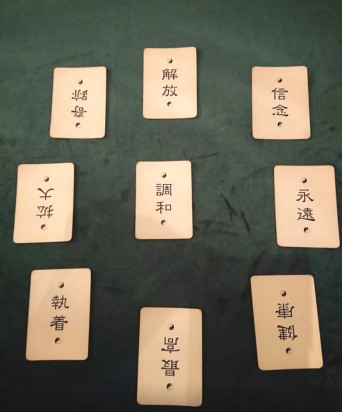 奇跡
解放
信念
拡大
調和
永遠
執着
最高
健康